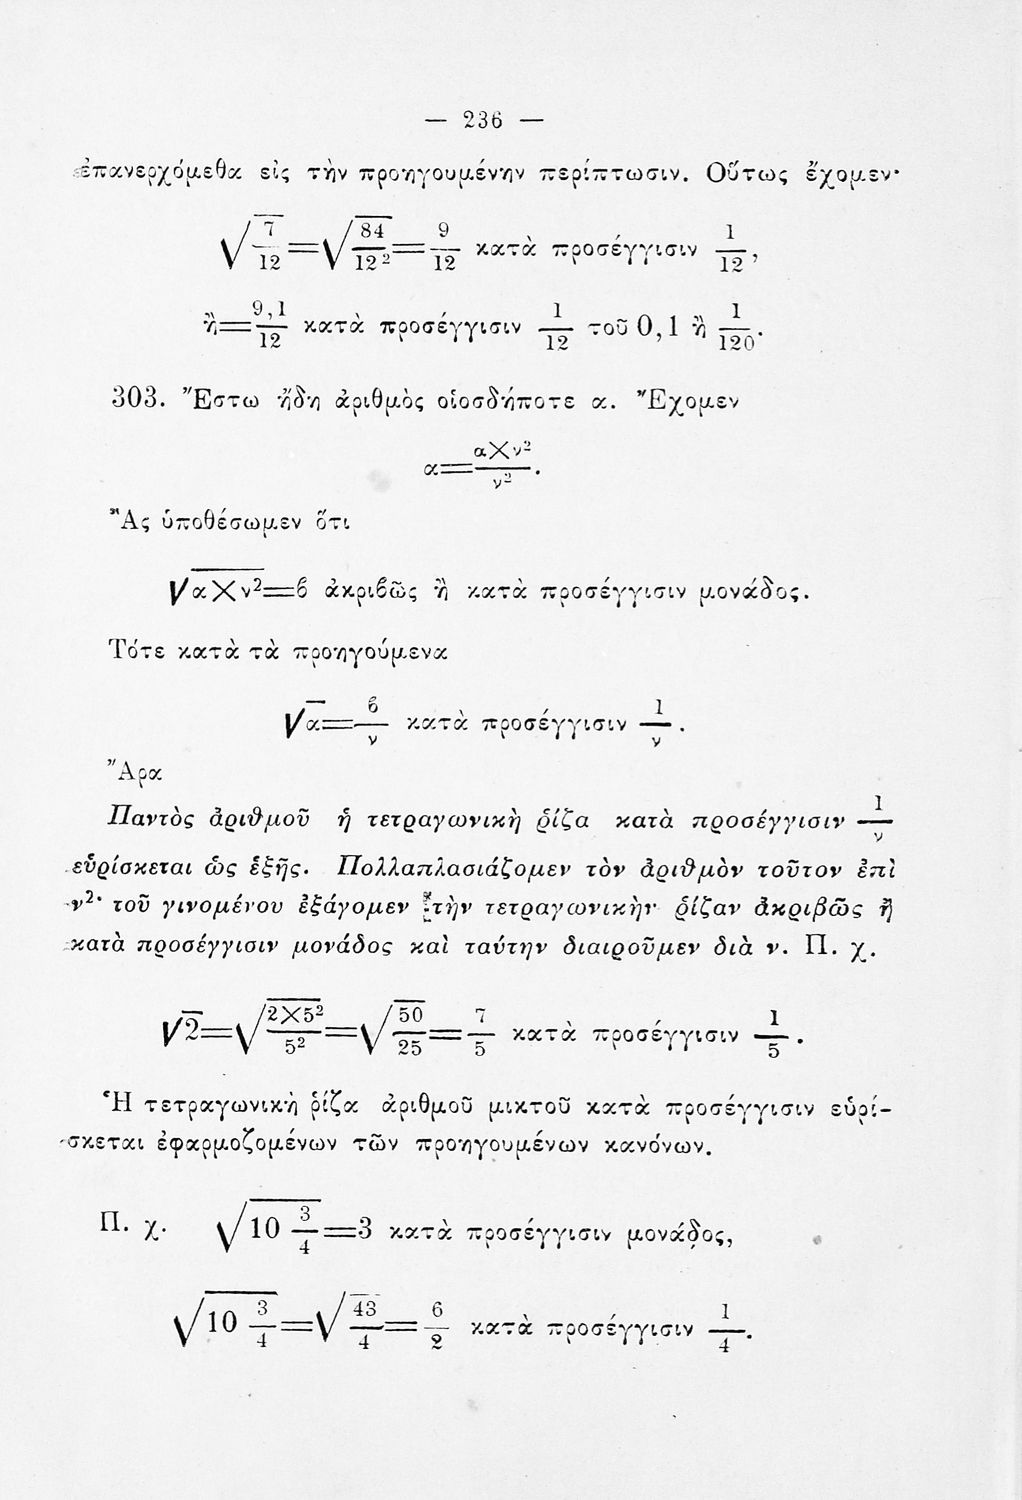 — 236 —
ἐπανερχόμεθα εἰς τὴν προηγουμένην περίπτωσιν. Οὕτως ἔχομεν·
√7/12=√84/12²=9/12 κατὰ προσέγγισιν 1/12,
ἢ=9,1/12 κατὰ προσέγγισιν 1/12 τοῦ 0,1 ἢ 1/120.
303. Ἔστω ἤδη ἀριθμὸς οἱοσδήποτε α. Ἔχομεν
α=α×ν²/ν².
Ἂς ὑποθέσωμεν ὅτι
√α×ν²=ϐ ἀκριϐῶς ἢ κατὰ προσέγγισιν μονάδος.
Τότε κατὰ τὰ προηγούμενα
√α=ϐ/ν κατὰ προσέγγισιν 1/ν.
Ἄρα
Παντὸς ἀριθμοῦ ἡ τετραγωνικὴ ῥίζα κατὰ προσέγγισιν 1/ν
εὑρίσκεται ὡς ἑξῆς. Πολλαπλασιάζομεν τὸν ἀριθμὸν τοῦτον ἐπὶ
ν²· τοῦ γινομένου ἐξάγομεν τὴν τετραγωνικὴν ῥίζαν ἀκριβῶς ἢ
κατὰ προσέγγισιν μονάδος καὶ ταύτην διαιροῦμεν διὰ ν. Π. χ.
√2=√2×5²/5²=√50/25=7/5 κατὰ προσέγγισιν 1/5.
Ἡ τετραγωνικὴ ῥίζα ἀριθμοῦ μικτοῦ κατὰ προσέγγισιν εὑρί-
σκεται ἐφαρμοζομένων τῶν προηγουμένων κανόνων.
Π. χ. √10 3/4=3 κατὰ προσέγγισιν μονάδος,
√10 3/4=√43/4=6/2 κατὰ προσέγγισιν 1/4.